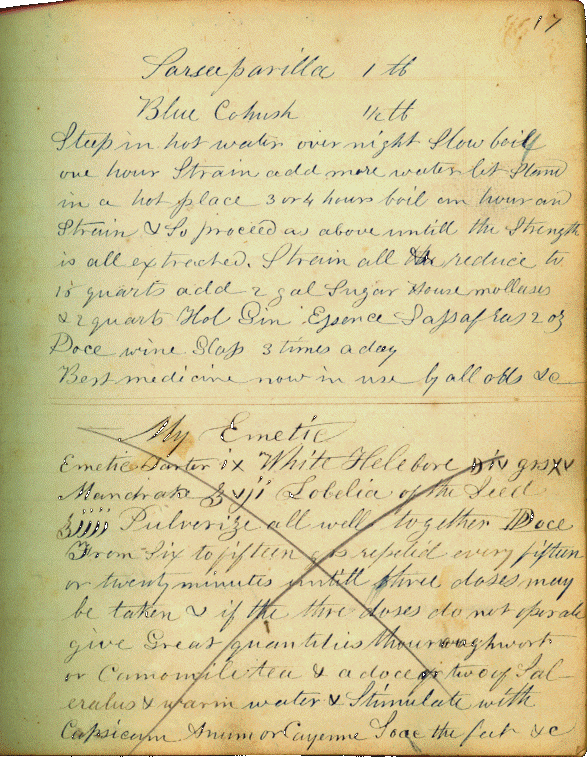 17
Sarseeparilla 1 lb
Blue Cohush 1/2 lb
Steep in hot water over night Slow boil
one hour Strain add more water let Stand
in a hot place 3 or 4 hours boil an hour and
Strain & So proceed as above untill the Strength
is all extracted. Strain all reduce to
15 quarts add 2 gal Sugar House mollases
& 2 quarts Hol Gin Essence Sassafras 2 oz
Doce wine Glass 3 times a day
Best medicine now in use by all odds &c
My Emetic
Emetic Tarter ix White Helebore grs xv
Mandrake ʒ vji Lobelia of the Seed
ʒ jjjj Pulverize all well together Doce
From Six to fifteen grs repeted every fifteen
or twenty minutes untill three doses may
be taken & if the thre doses do not operate
give Great quantities thouroughwort
or Camomile tea & a doce or two of Sal-
eratus & warm water & Stimulate with
Capsicum Anum or Cayenne Soae the feet &c